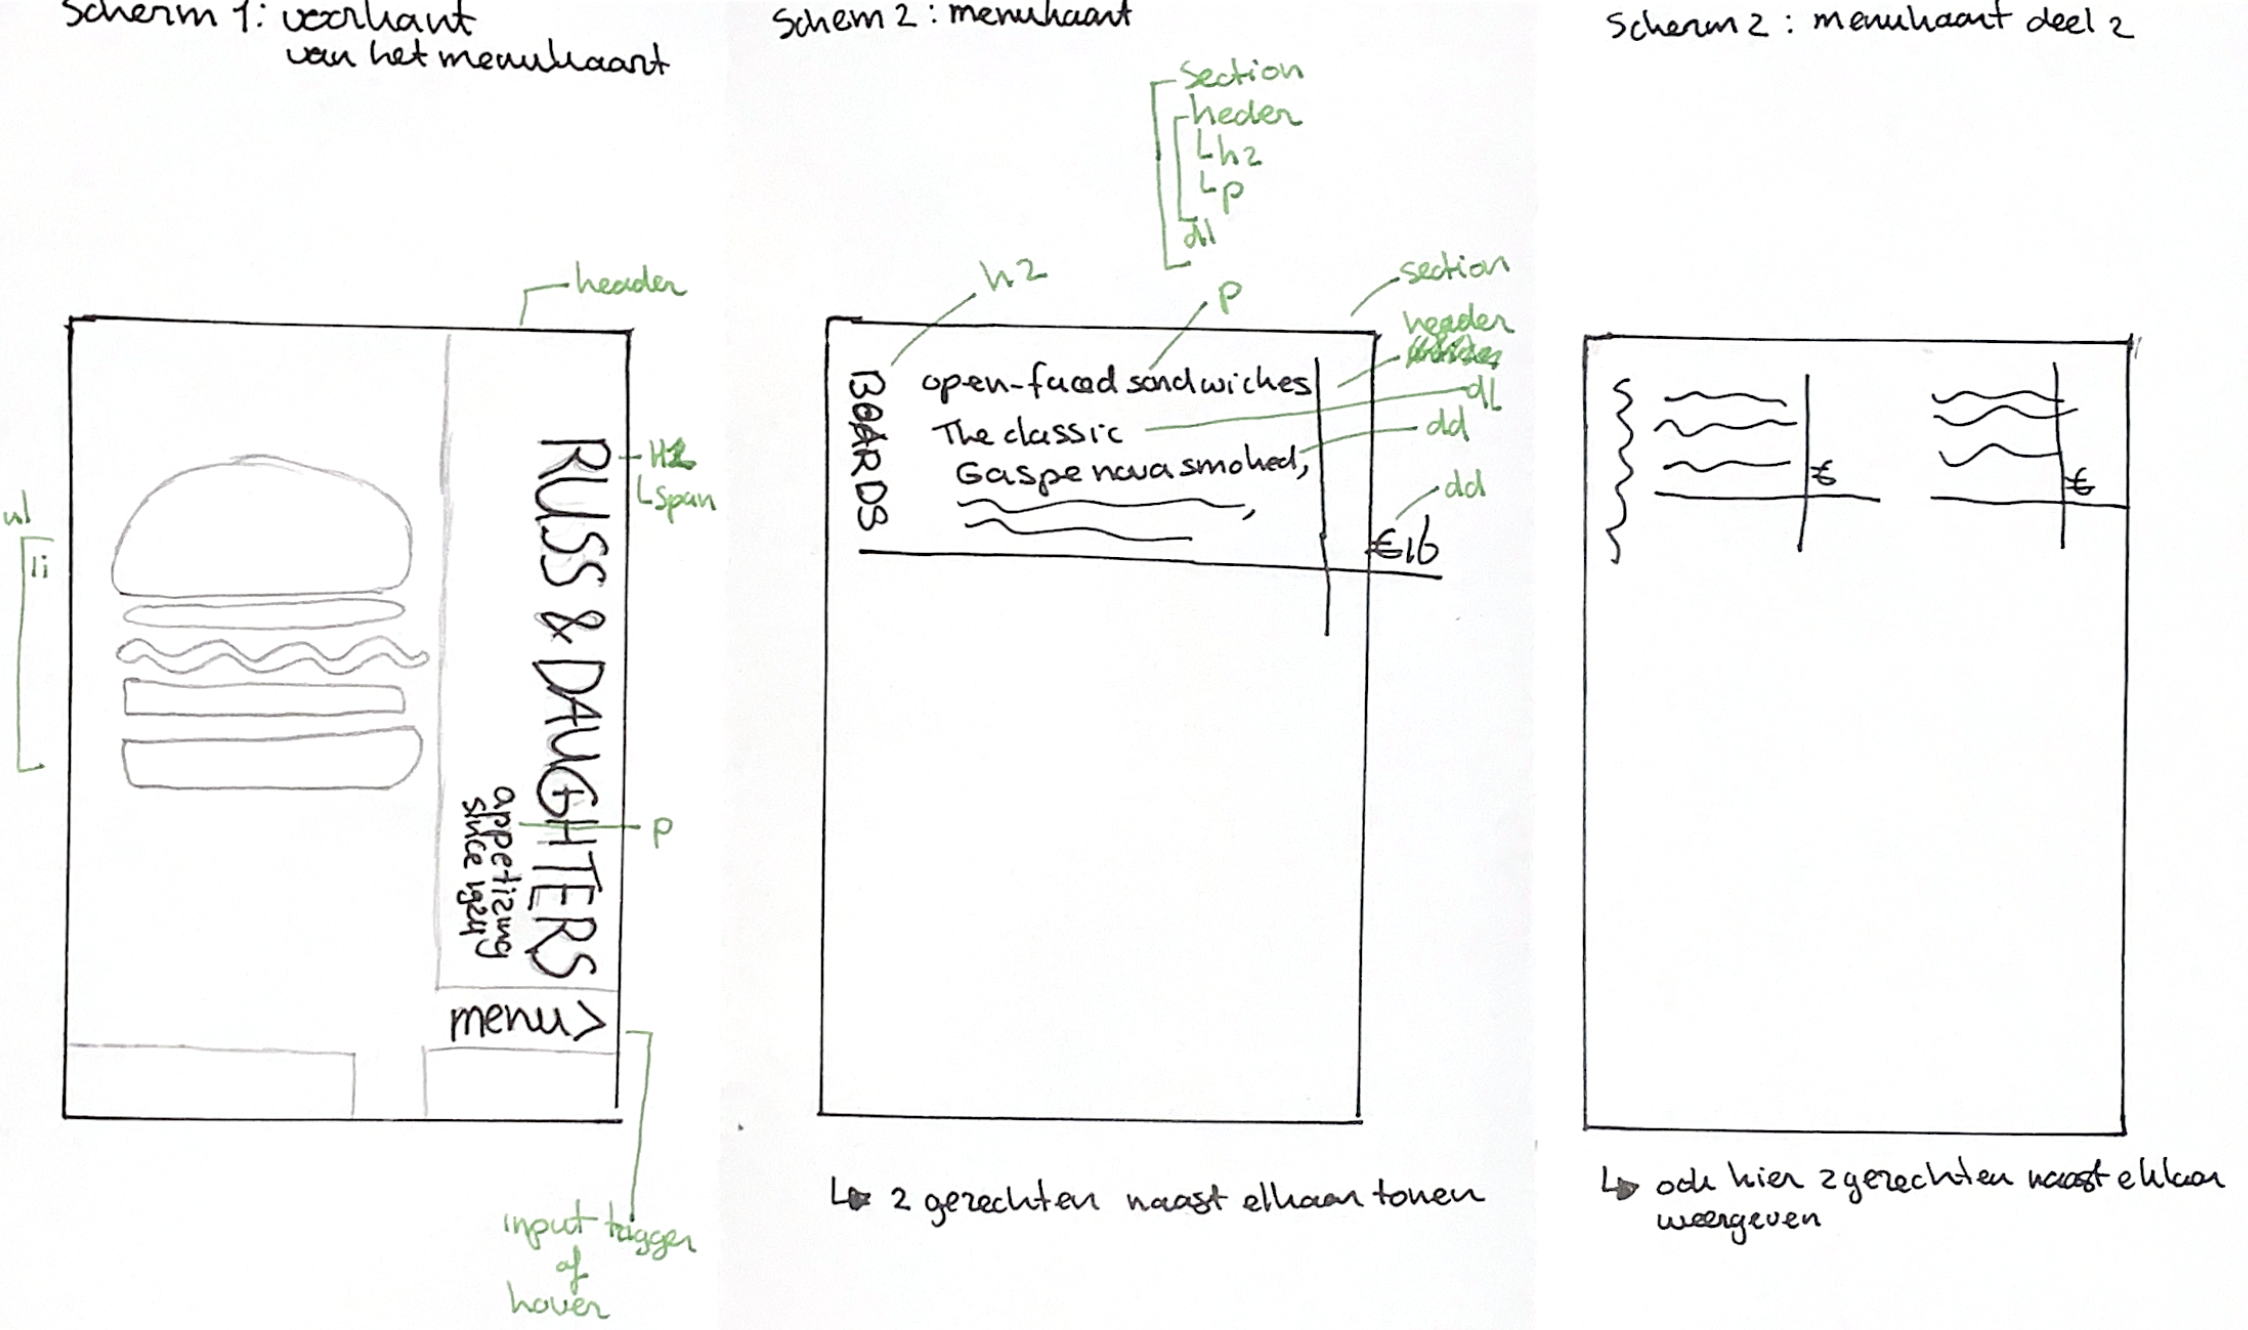 Scherm 1: voorkant
van het menukaart
header
H1
span
ul
li
RUSS & DAUGHTERS
appetizing
since 1914
p
menu >
input trigger
of
hover
Scherm 2 : menukaart
section
heder
h2
p
dl
h2
p
section
header
dL
dd
dd
BOARDS
open-faced sandwiches
The classic
Gaspe nova smoked,
€16
↳ 2 gerechten naast elkaar tonen
Scherm 2 : menukaart deel 2
€
€
↳ ook hier 2 gerechten naast elkaar
weergeven